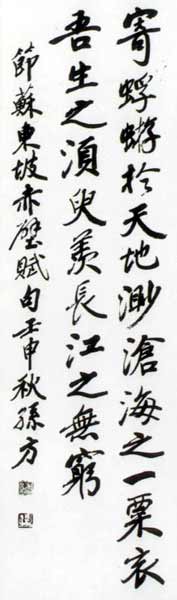 寄蜉蝣於天地渺滄海之一粟哀
吾生之須臾羨長江之無窮
節蘇東坡赤壁賦句壬申秋孫方